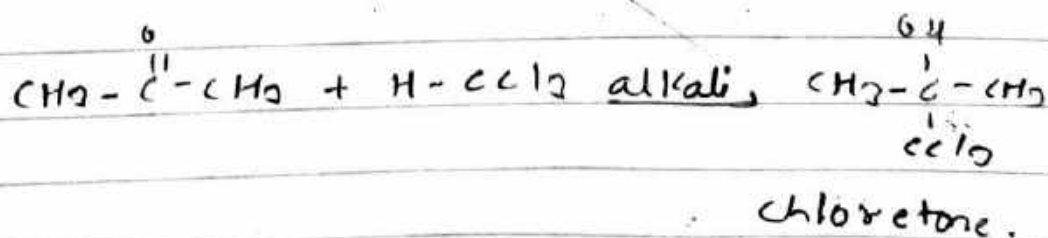 O OH
CH3 - C - CH3 + H - CCl3 alkali, CH3 - C - CH3
CCl3
chloretone.